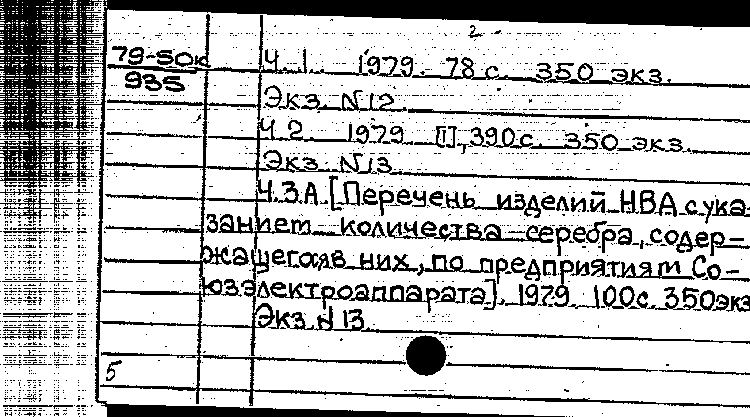 2
79-50к
935
Ч. 1. 1979. 78 с. 350 экз.
Экз. N 12.
Ч. 2. 1979 [I], 390 с. 350 экз.
Экз. N 13
Ч. 3.А. [Перечень изделий НВА с ука-
занием количества серебра, содер-
жащегося в них, по предприятиям Со-
юзэлектроаппарата]. 1979 100 с. 350 экз
Экз. N 13
5